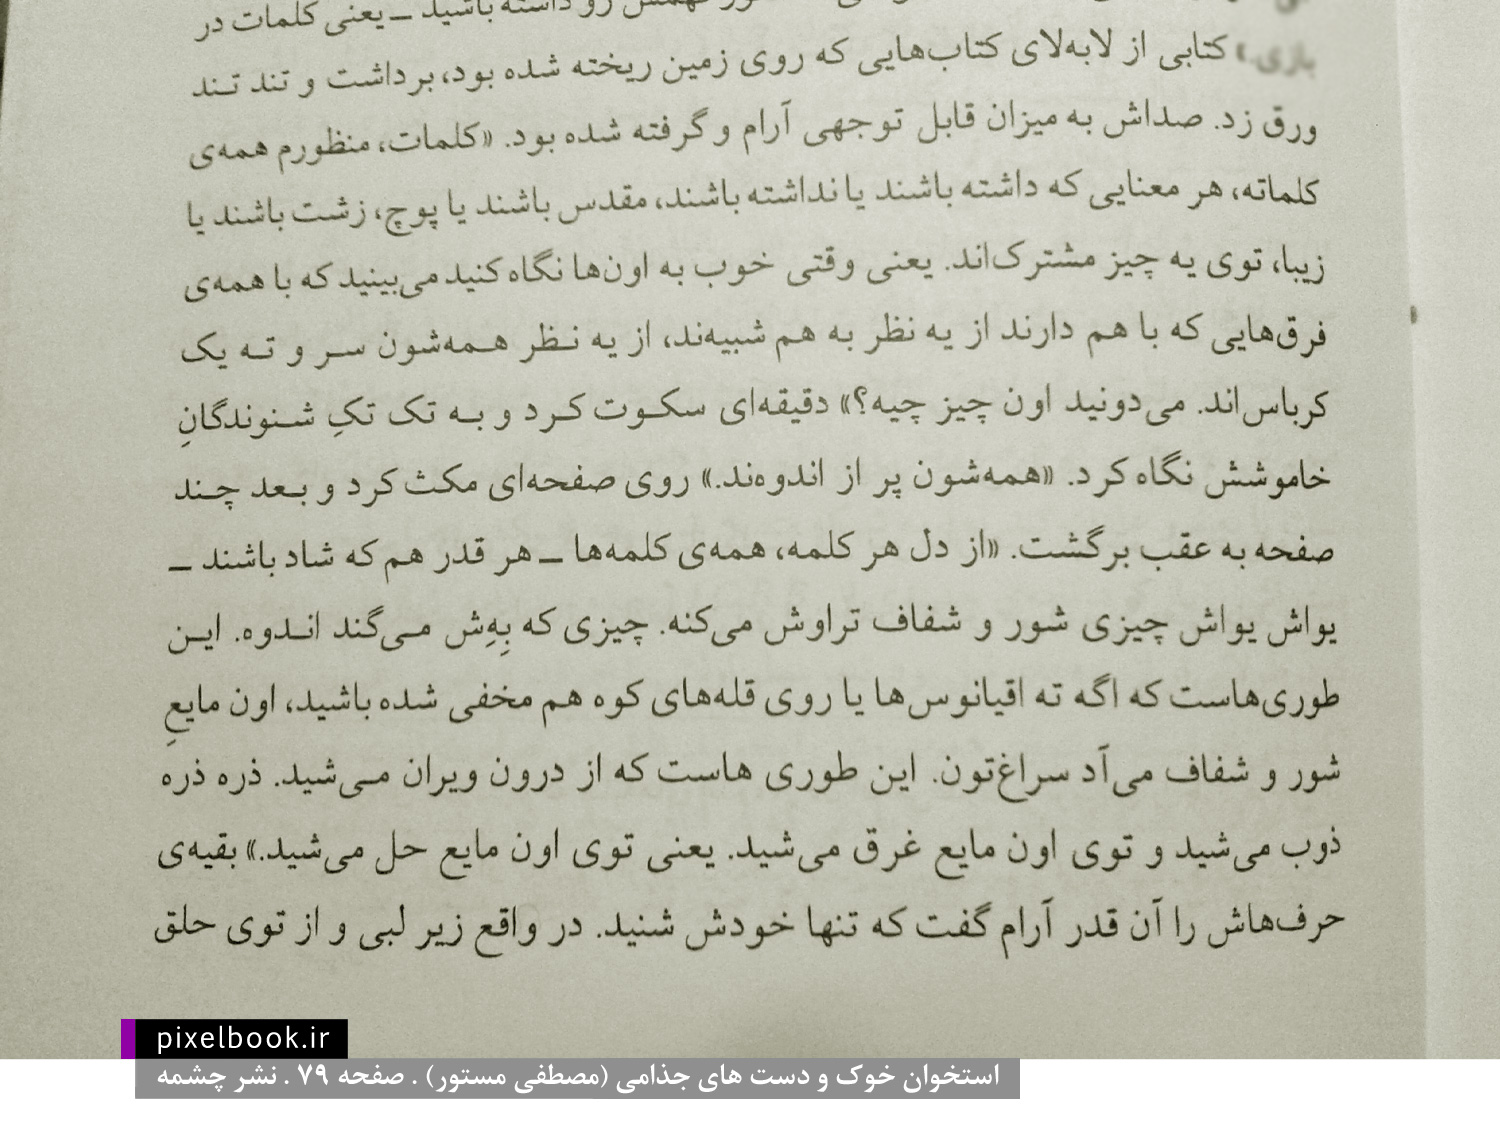 داشته باشید ــ یعنی کلمات در
بازی.» کتابی از لابه‌لای کتاب‌هایی که روی زمین ریخته شده بود، برداشت و تند تند
ورق زد. صداش به میزان قابل توجهی آرام و گرفته شده بود. «کلمات، منظورم همه‌ی
کلماته، هر معنایی که داشته باشند یا نداشته باشند، مقدس باشند یا پوچ، زشت باشند یا
زیبا، توی یه چیز مشترک‌اند. یعنی وقتی خوب به اون‌ها نگاه کنید می‌بینید که با همه‌ی
فرق‌هایی که با هم دارند از یه نظر به هم شبیه‌ند، از یه نظر همه‌شون سر و ته یک
کرباس‌اند. می‌دونید اون چیز چیه؟» دقیقه‌ای سکوت کرد و به تک تکِ شنوندگانِ
خاموشش نگاه کرد. «همه‌شون پر از اندوه‌ند.» روی صفحه‌ای مکث کرد و بعد چند
صفحه به عقب برگشت. «از دل هر کلمه، همه‌ی کلمه‌ها ــ هر قدر هم که شاد باشند ــ
یواش یواش چیزی شور و شفاف تراوش می‌کنه. چیزی که بِهِش می‌گند اندوه. این
طوری‌هاست که اگه ته اقیانوس‌ها یا روی قله‌های کوه هم مخفی شده باشید، اون مایعِ
شور و شفاف می‌آد سراغ‌تون. این طوری هاست که از درون ویران می‌شید. ذره ذره
ذوب می‌شید و توی اون مایع غرق می‌شید. یعنی توی اون مایع حل می‌شید.» بقیه‌ی
حرف‌هاش را آن قدر آرام گفت که تنها خودش شنید. در واقع زیر لبی و از توی حلق
pixelbook.ir
استخوان خوک و دست های جذامی (مصطفی مستور) . صفحه ۷۹ . نشر چشمه